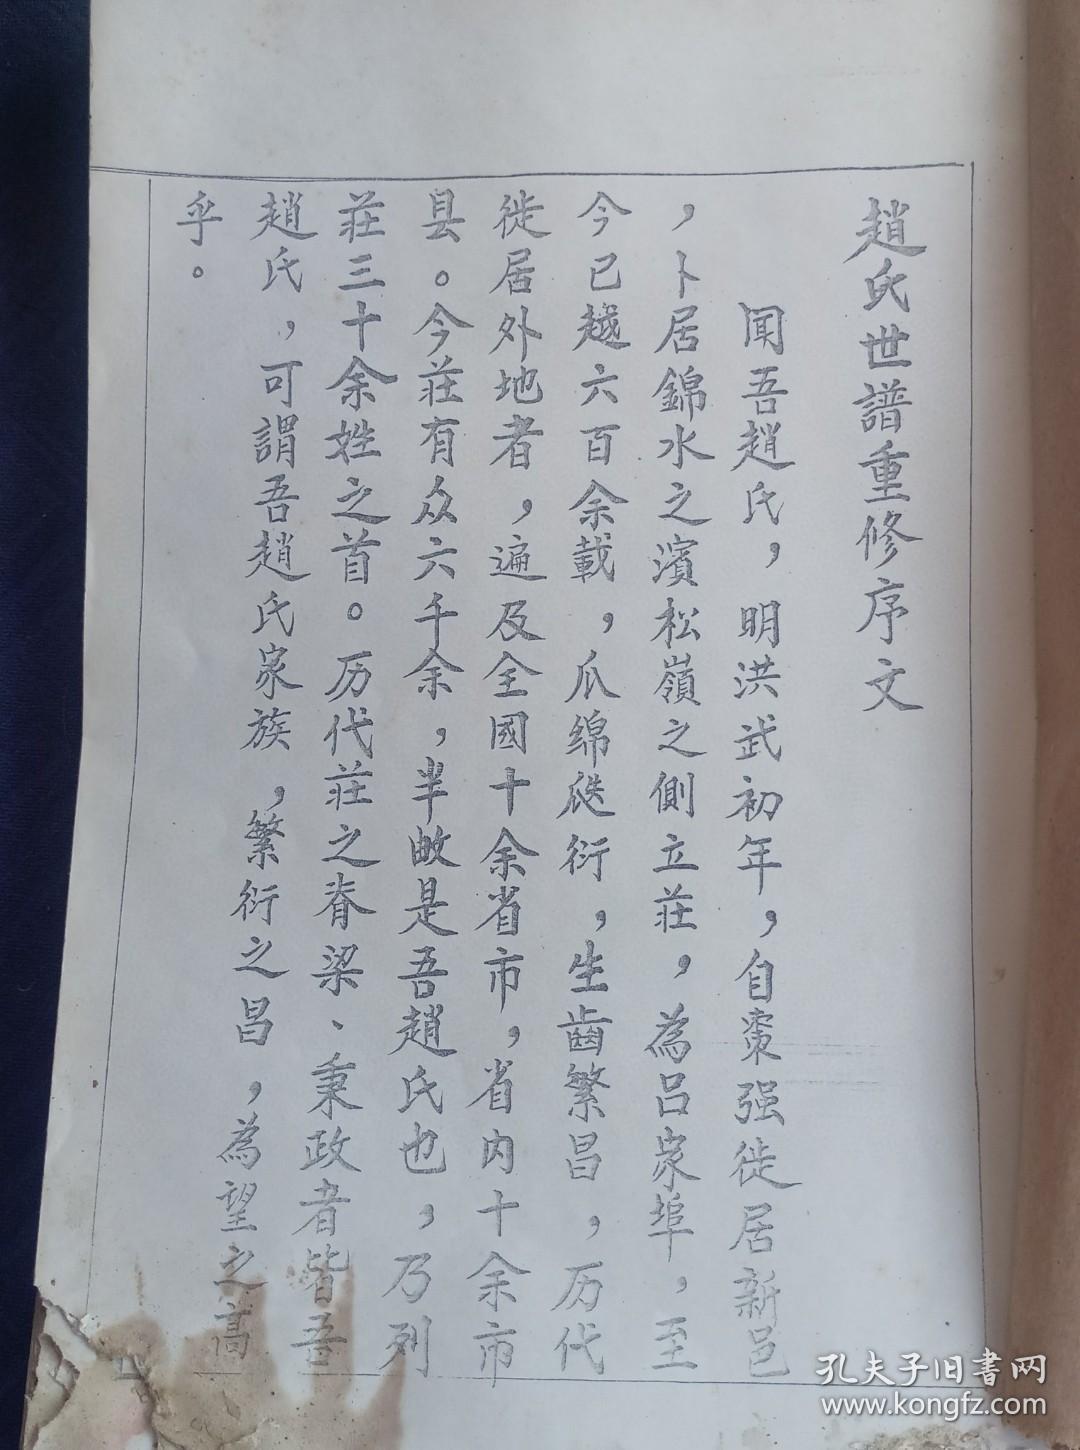 趙氏世譜重修序文
聞吾趙氏，明洪武初年，自棗强徙居新邑
，卜居錦水之濱松嶺之側立莊，為吕家埠，至
今已越六百余載，瓜绵瓞衍，生齒繁昌，历代
徙居外地者，遍及全國十余省市，省内十余市
县。今莊有众六千余，半數是吾趙氏也，乃列
莊三十余姓之首。历代莊之脊梁、秉政者皆吾
趙氏，可謂吾趙氏家族，繁衍之昌，為望之高
乎。
孔夫子旧書网
www.kongfz.com